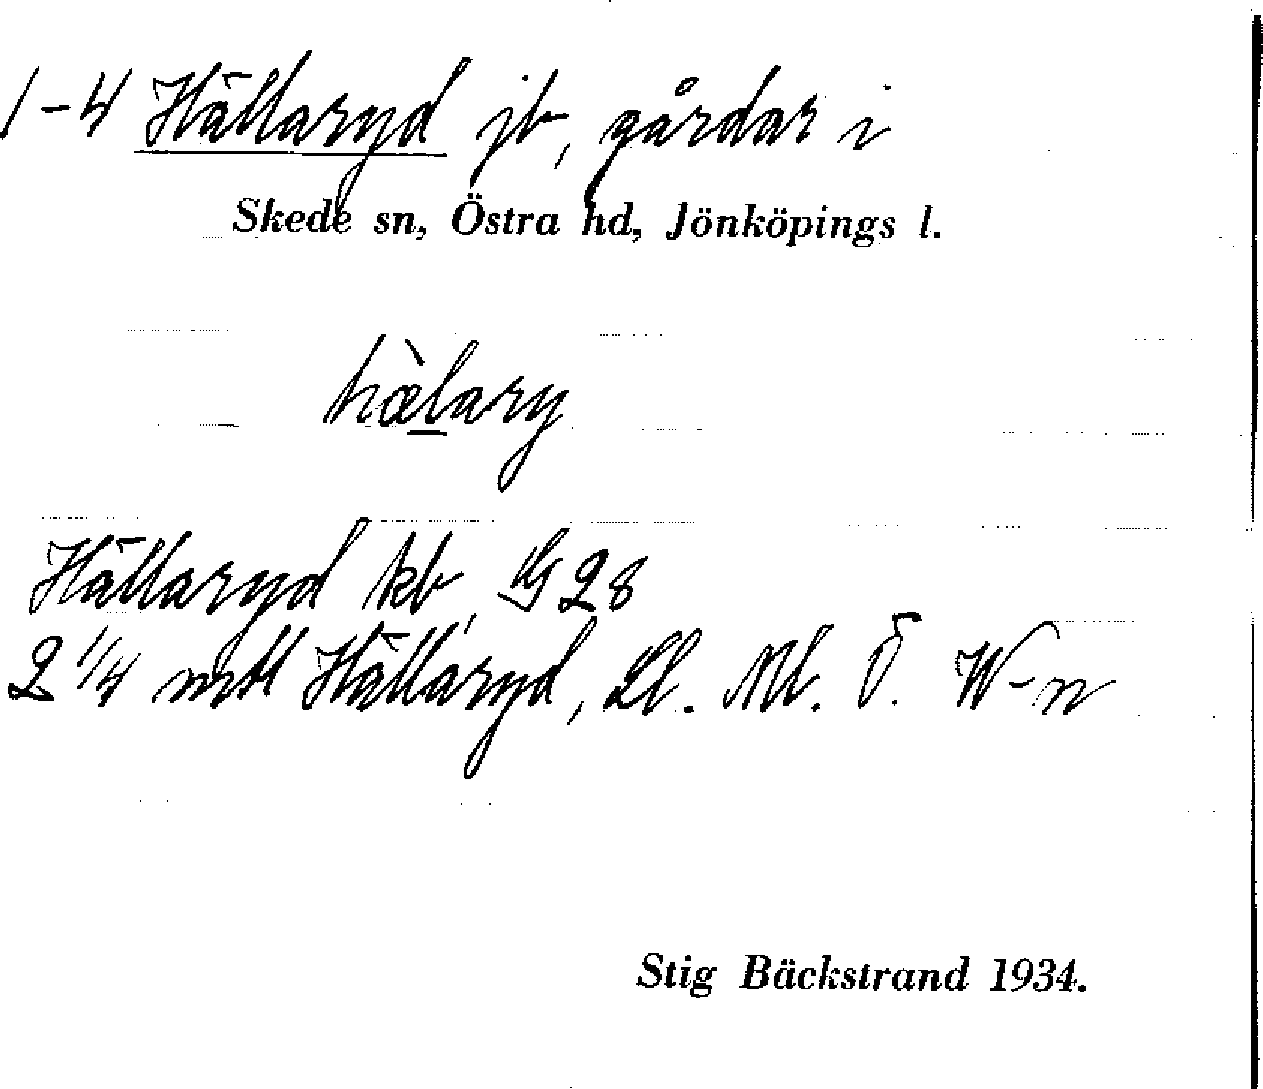 1-4 Hällaryd jb, gårdar i
Skede sn, Östra hd, Jönköpings l.
hæ̀lary
Hällaryd kb, G 28
2 1/4 mtl Hällaryd, Ll. Ml. Ö. W-n
Stig Bäckstrand 1934.